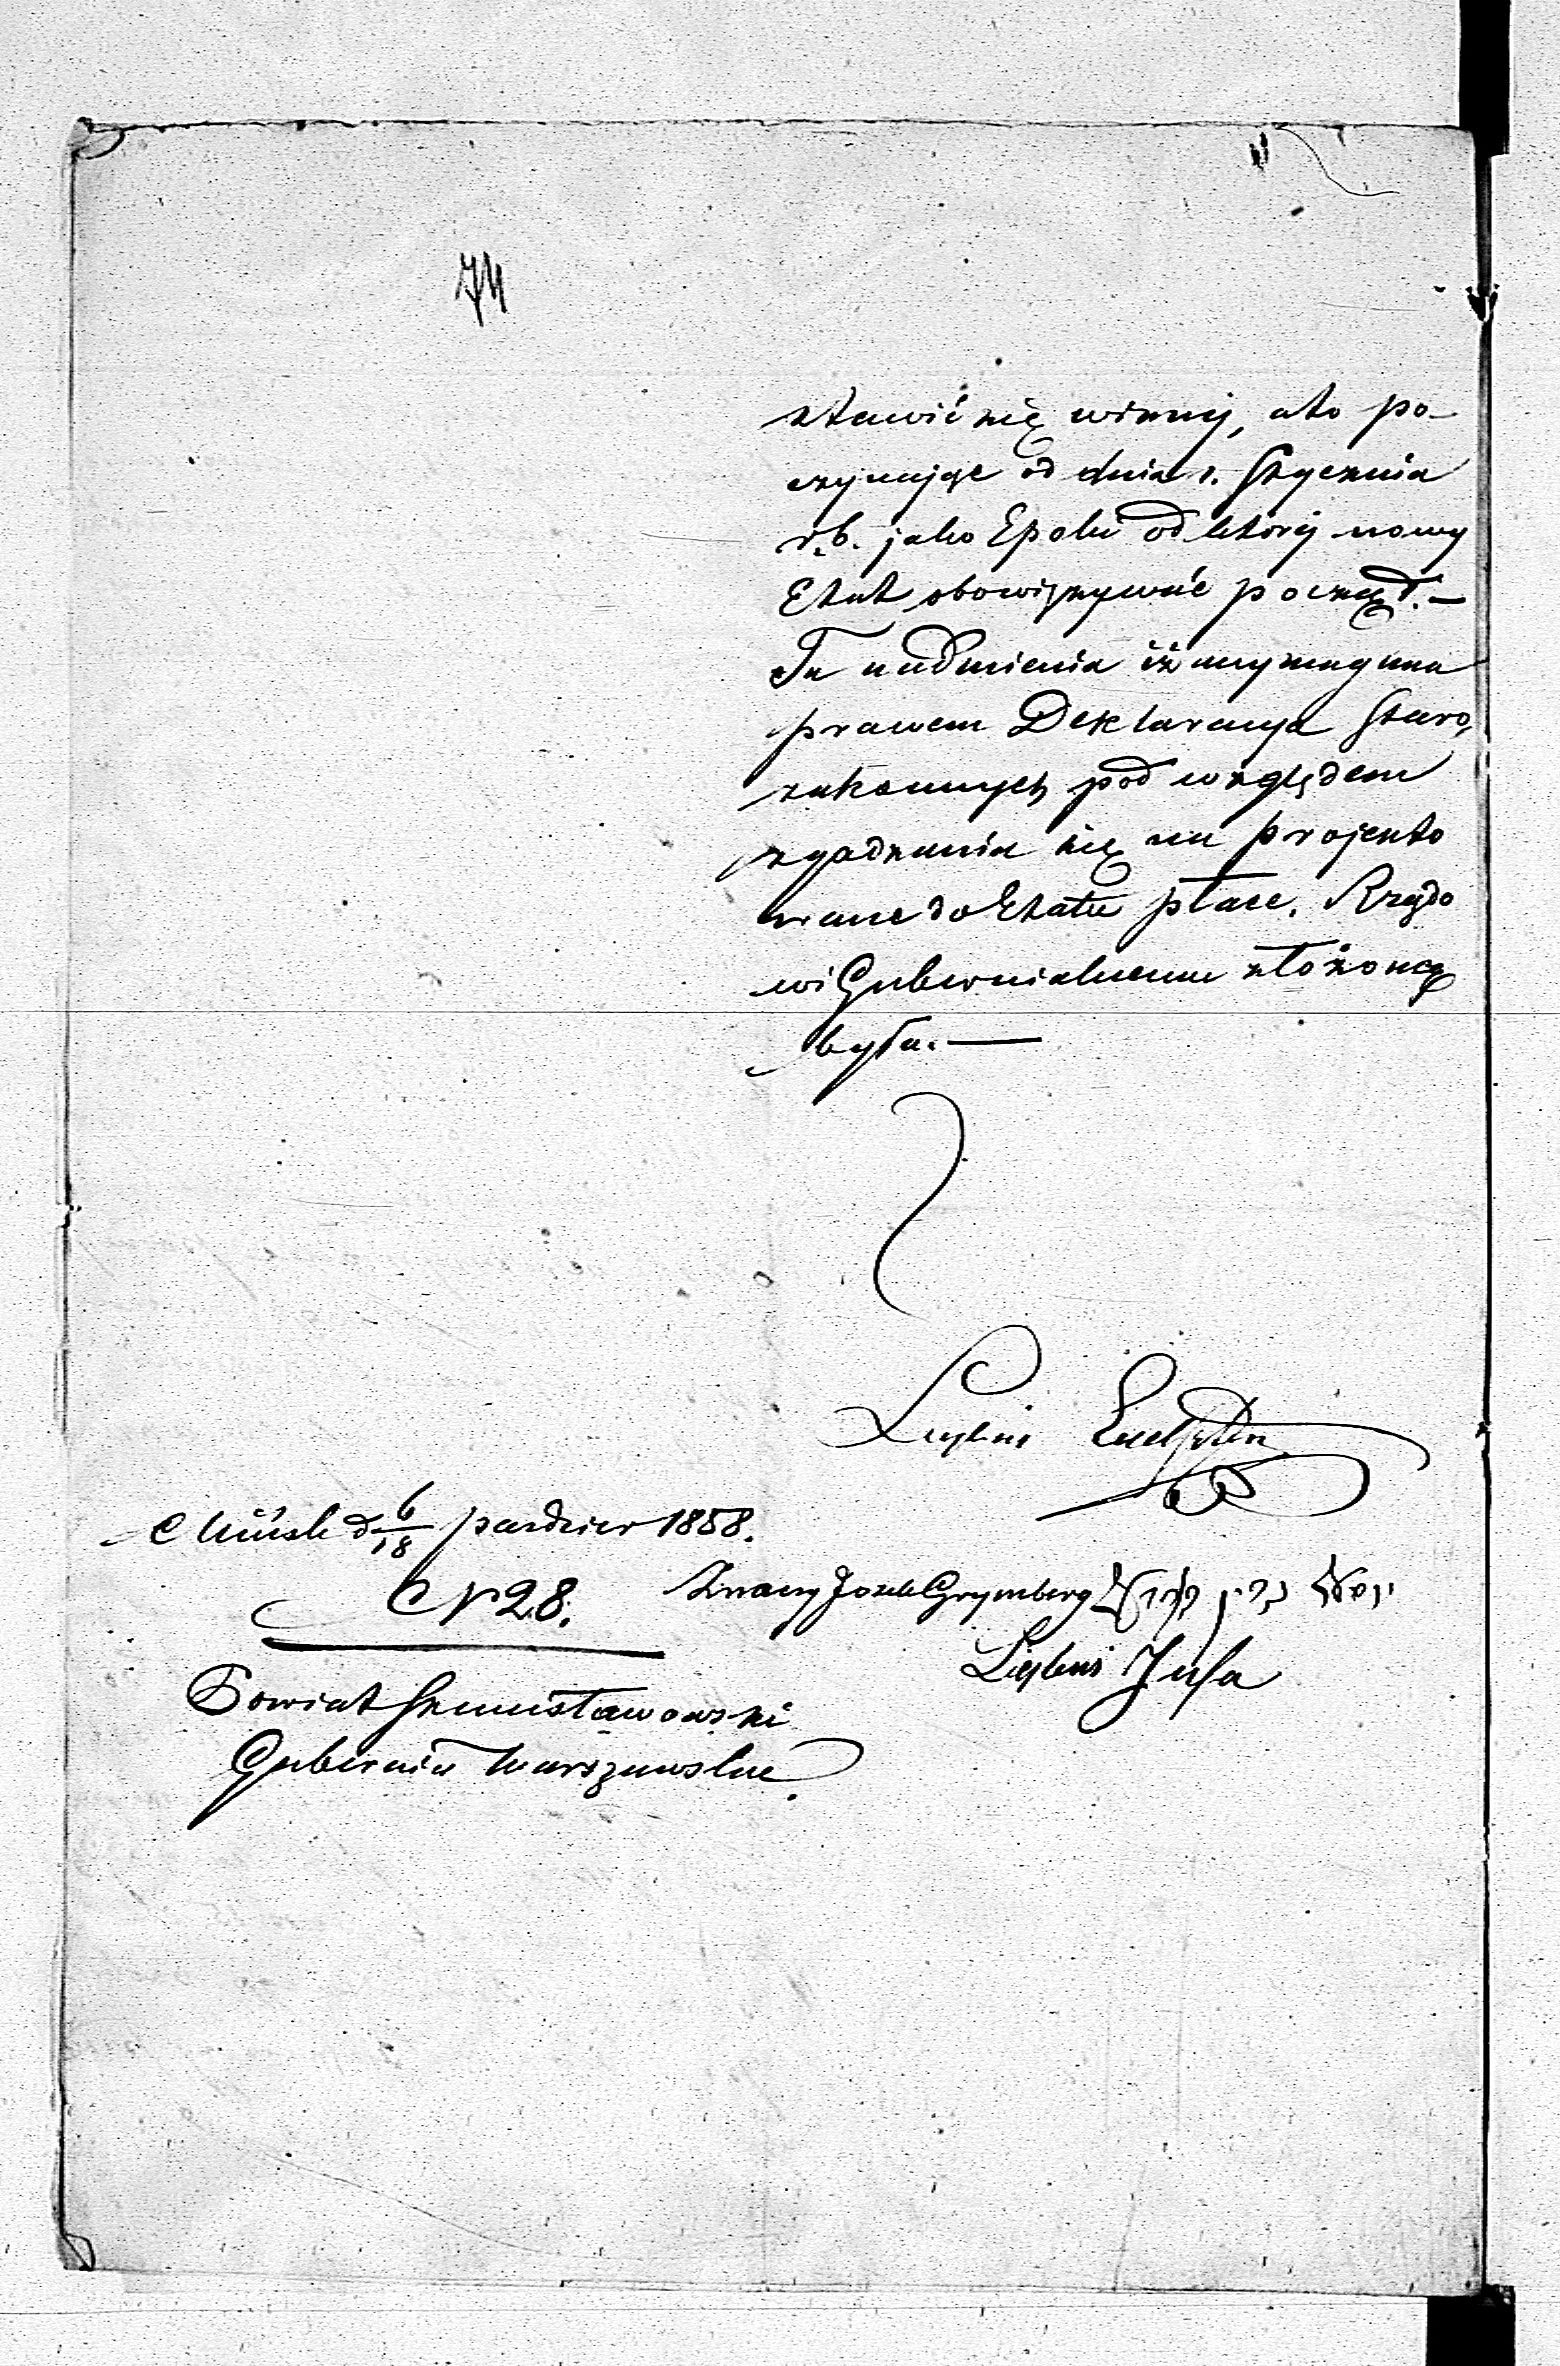 74
stawić się winny, a to po-
czynając od dnia 1. Stycznia
r. b. jako Epoki od której nowy
Etat obowiązywać począł. —
Tu nadmienia iż wymagana
prawem Deklaracya Staro,
zakonnych pod względem
zgadzania się na projekto
wane do Etatu płace, Rządo
wi Gubernialnemu złożoną
była. —
Leybuś
Mińsk d 6/18 pazdzier 1858.
N 28.
Josek Grynberg
Leybuś Jusa
Powiat Stanisławowski
Gubernia Warszawska.